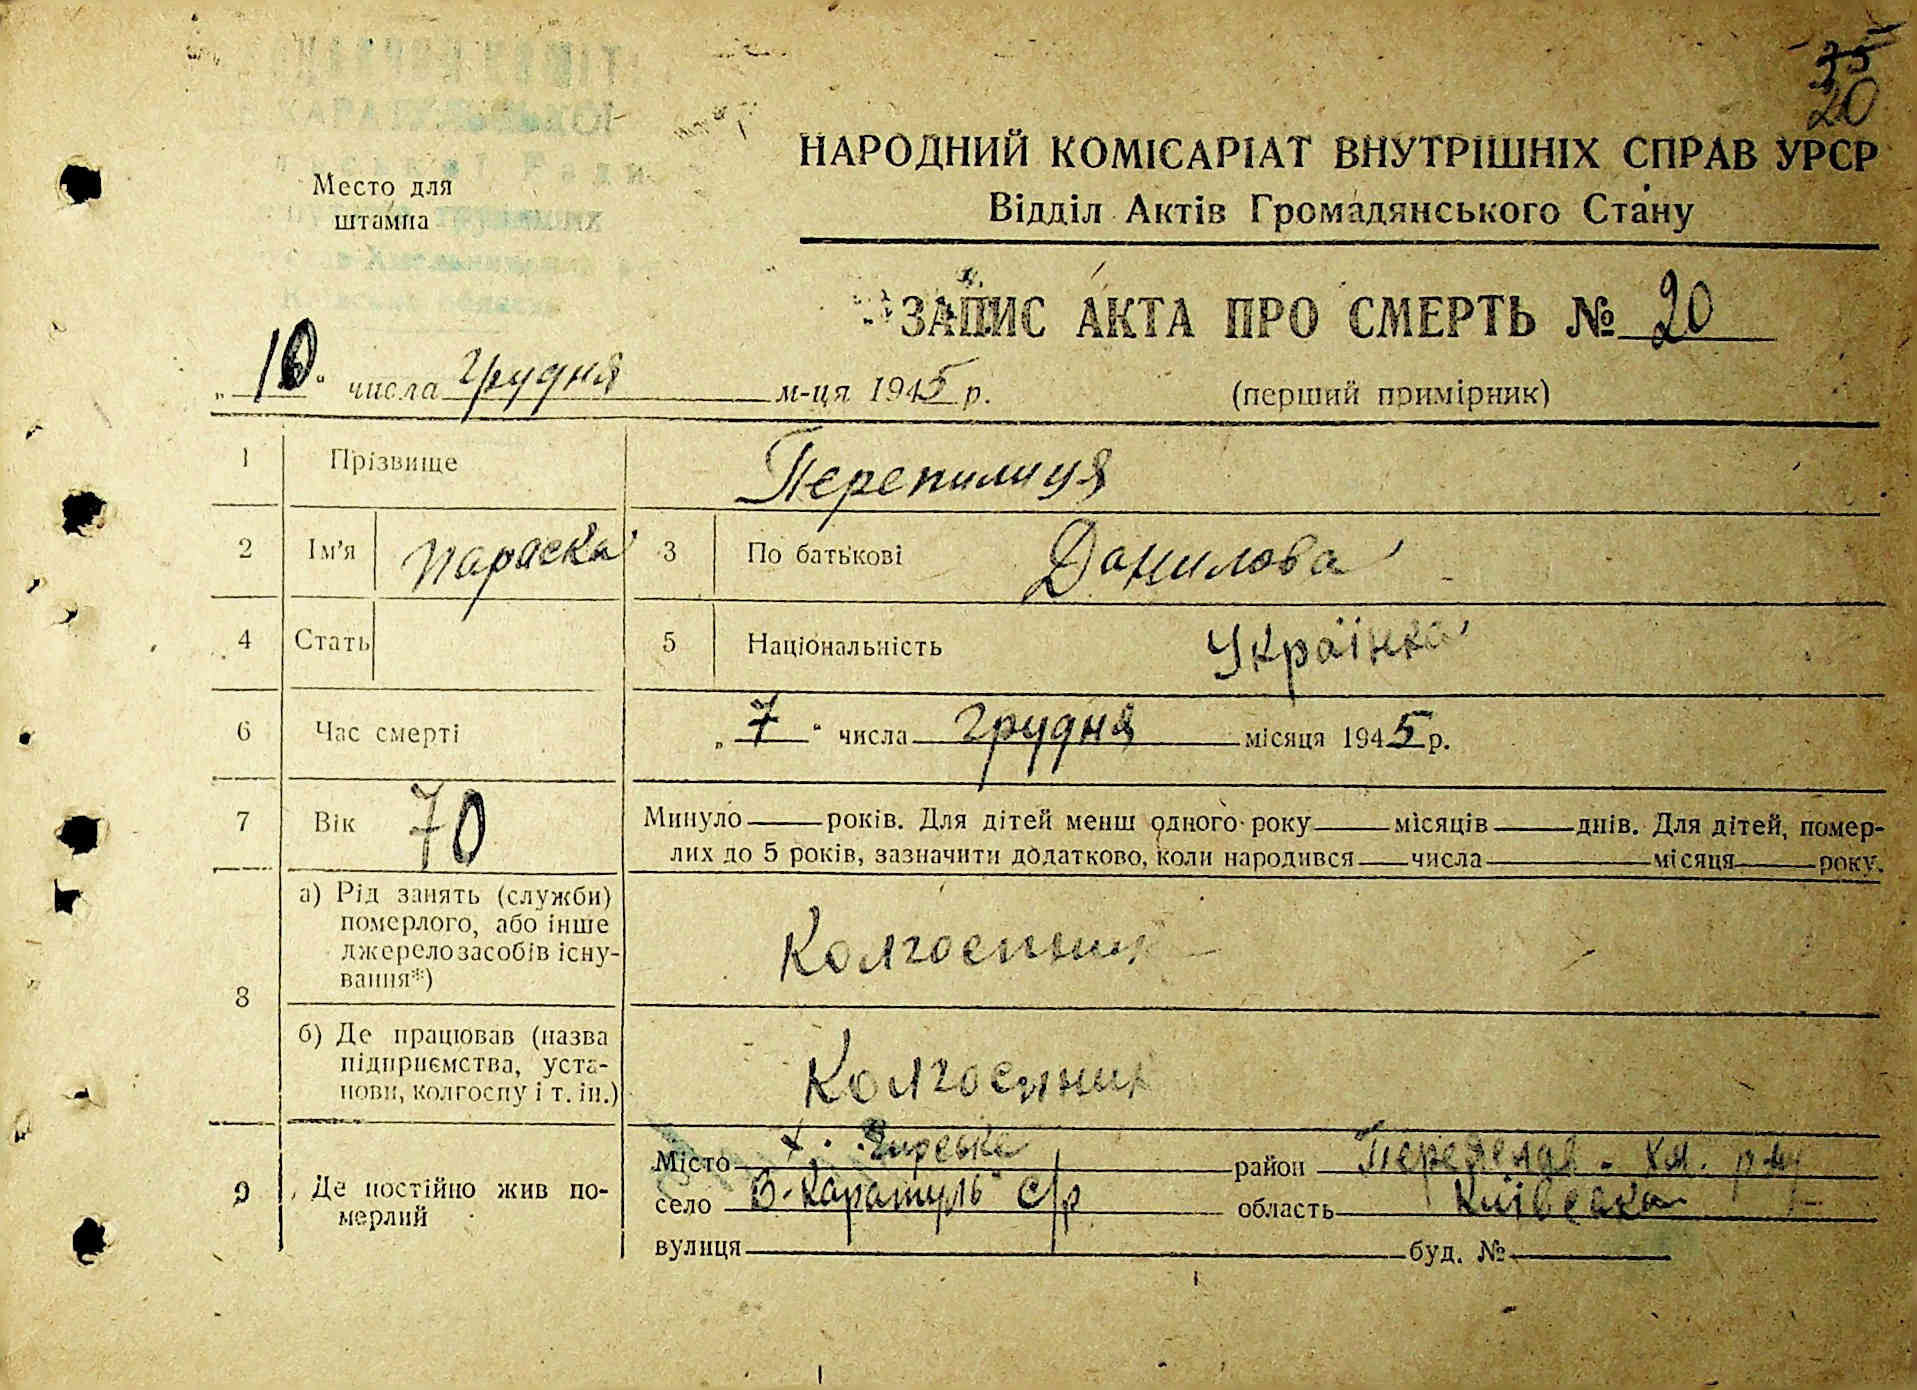 20
Место для
штампа
НАРОДНИЙ КОМІСАРІАТ ВНУТРІШНІХ СПРАВ УРСР
Відділ Актів Громадянського Стану
ЗАПИС АКТА ПРО СМЕРТЬ № 20
„10“ числа грудня м-ця 1945 р.
(перший примірник)
1 Прізвище Перепилиця
2 Ім’я Параска 3 По батькові Данилова
4 Стать 5 Національність Українка
6 Час смерті „7“ числа грудня місяця 1945 р.
7 Вік 70 Минуло років. Для дітей менш одного року місяців днів. Для дітей, помер-
лих до 5 років, зазначити додатково, коли народився числа місяця року.
8 а) Рід занять (служби)
померлого, або інше
джерело засобів існу-
вання*)
Колгоспник
б) Де працював (назва
підприємства, уста-
нови, колгоспу і т. ін.)
Колгоспник
9 Де постійно жив по-
мерлий
Місто х. район
село В-Каратуль с/р область Київська
вулиця буд. №